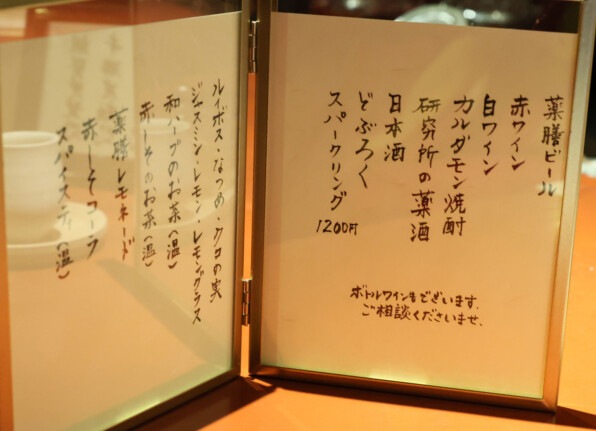 薬膳ビール
赤ワイン
白ワイン
カルダモン焼酎
研究所の薬酒
日本酒
どぶろく
スパークリング 1200円
ボトルワインもございます。
ご相談くださいませ。
ルイボス・なつめ・クコの実
ジャスミン・レモン・レモングラス
和ハーブのお茶(温)
赤しそのお茶(温)
薬膳レモネード
赤しそコーラ
スパイスティ(温)